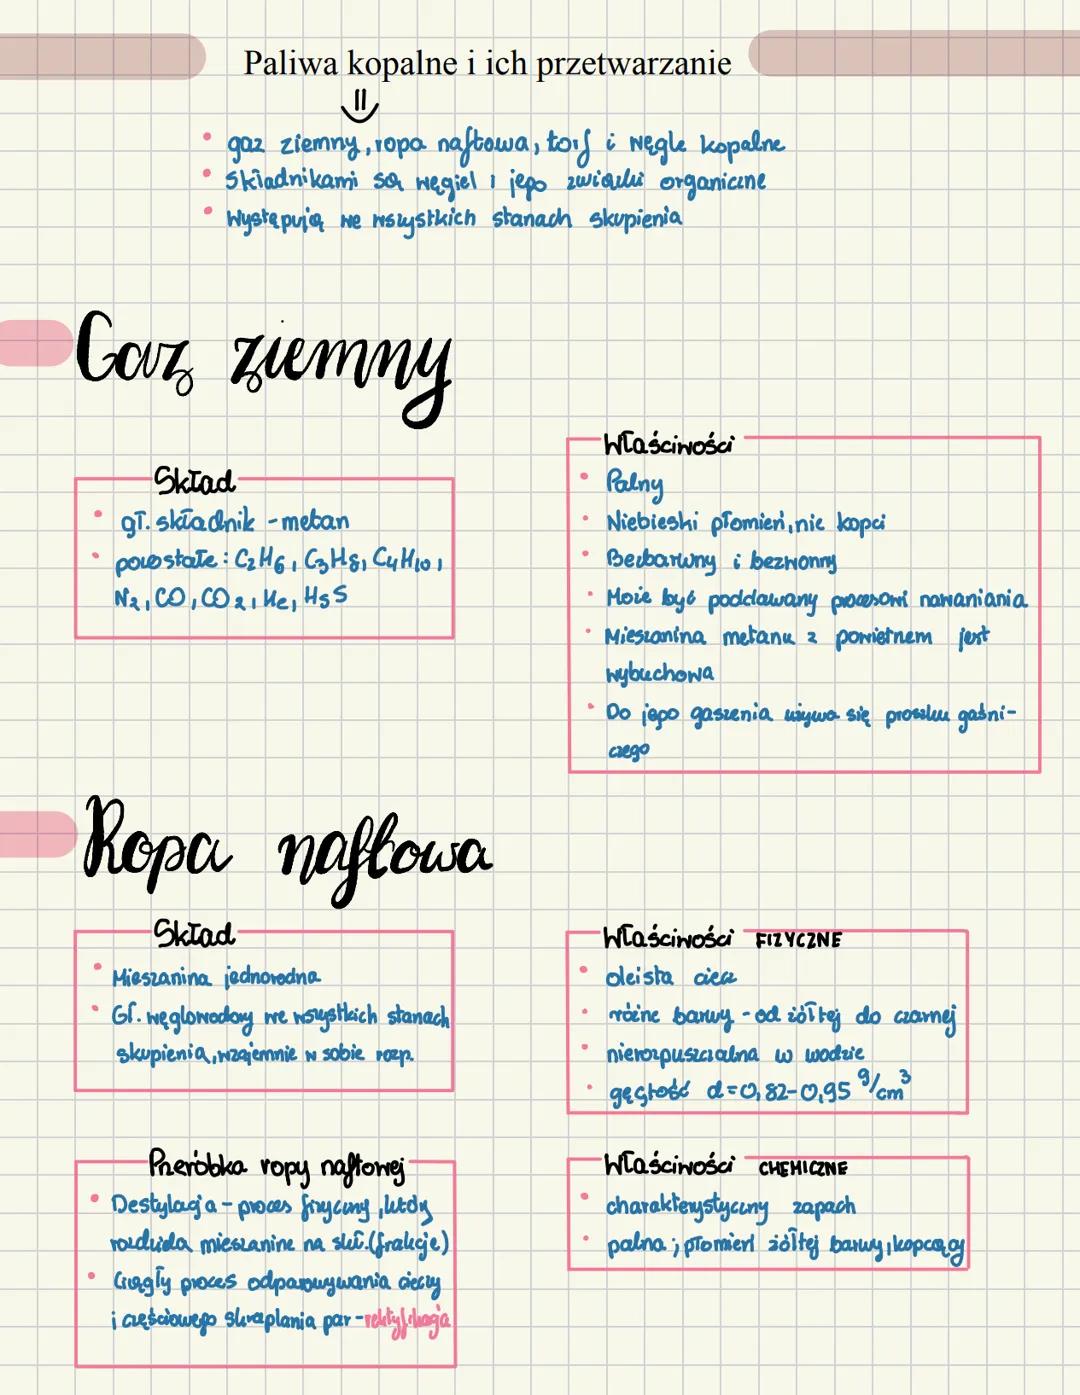 Paliwa kopalne i ich przetwarzanie
• gaz ziemny, ropa naftowa, torf i węgle kopalne
• Składnikami są węgiel i jego związki organiczne
• Występują we wszystkich stanach skupienia
Gaz ziemny
Skład
• gł. składnik - metan
• pozostałe: C2H6, C3H8, C4H10,
N2, CO, CO2, He, HsS
Właściwości
• Palny
• Niebieski płomień, nie kopci
• Bezbarwny i bezwonny
• Może być poddawany procesowi nawaniania
• Mieszanina metanu z powietrzem jest
wybuchowa
• Do jego gaszenia używa się proszku gaśni-
czego
Ropa naftowa
Skład
• Mieszanina jednorodna
• Gł. węglowodory we wszystkich stanach
skupienia, wzajemnie w sobie rozp.
Właściwości FIZYCZNE
• oleista ciecz
• różne barwy - od żółtej do czarnej
• nierozpuszczalna w wodzie
• gęstość d=0,82-0,95 g/cm³
Przeróbka ropy naftowej
• Destylacja - proces fizyczny, który
rozdziela mieszaninę na skł. (frakcje)
• Ciągły proces odparowywania cieczy
i częściowego skraplania par - rektyfikacja
Właściwości CHEMICZNE
• charakterystyczny zapach
• palna; płomień żółtej barwy, kopcący